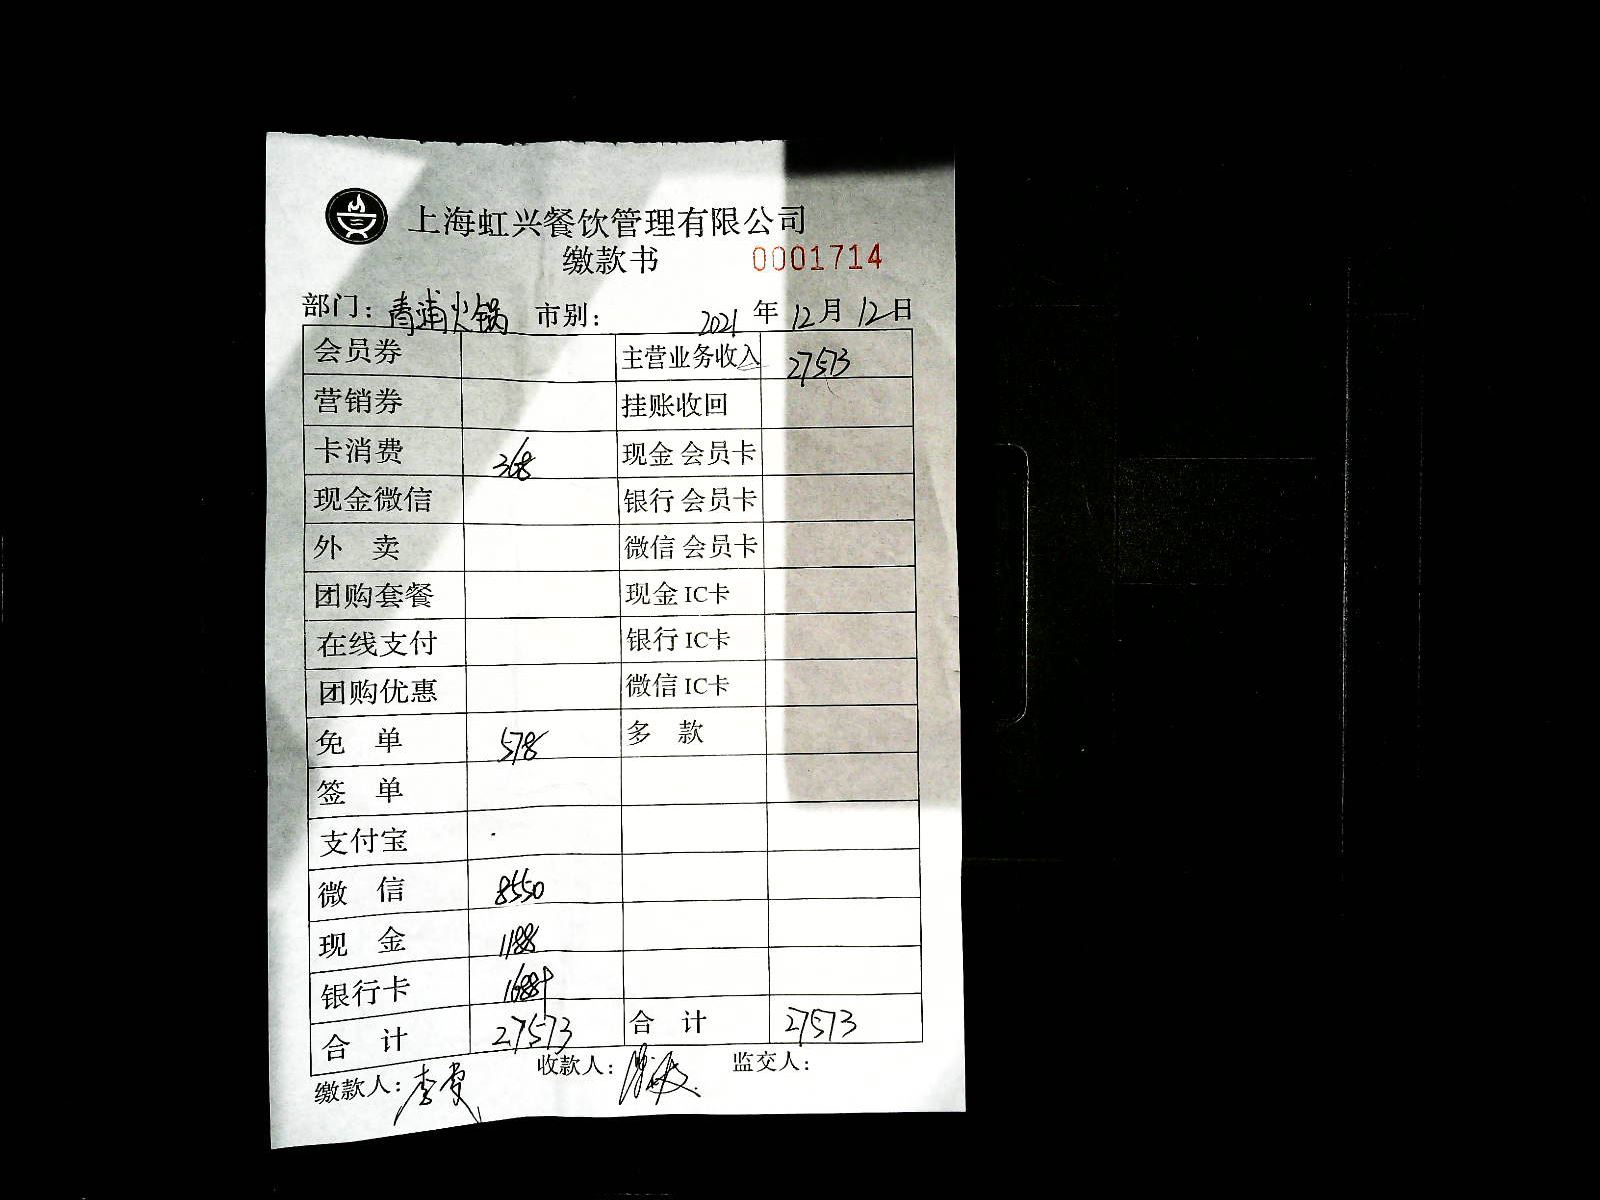 上海虹兴餐饮管理有限公司
缴款书 0001714
部门：青浦火锅 市别： 2021年12月12日
会员券 主营业务收入 27573
营销券 挂账收回
卡消费 368 现金会员卡
现金微信 银行会员卡
外 卖 微信会员卡
团购套餐 现金IC卡
在线支付 银行IC卡
团购优惠 微信IC卡
免 单 578 多 款
签 单
支付宝
微 信 8550
现 金 1188
银行卡 16889
合 计 27573 合 计 27573
缴款人：李 收款人： 监交人：